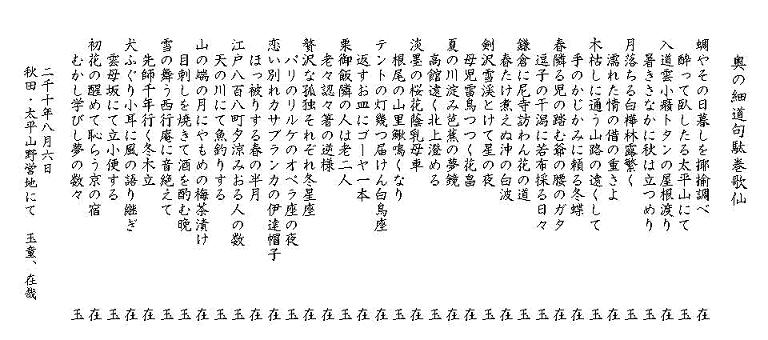 奥の細道句駄巻歌仙
蜩やその日暮しを揶揄調べ 在
酔って臥したる太平山にて 玉
入道雲小癪トタンの屋根渡り 在
暑きさなかに秋は立つめり 玉
月落ちる白樺林露繁く 在
濡れた情の借の重きよ 玉
木枯しに通う山路の遠くして 在
手のかじかみに頼る冬蝶 玉
春隣る児の踏む爺の腰のガタ 在
逗子の干潟に若布採る日々 玉
鎌倉に尼寺訪わん花の道 在
春たけ煮えぬ沖の白波 玉
剣沢雪渓とけて星の夜 在
母児雷鳥つつく花畠 玉
夏の川淀み芭蕉の夢鏡 在
高館遠く北上澄める 玉
淡墨の桜花蔭乳母車 在
根尾の山里鍬鳴くなり 玉
テントの灯幾つ届けん白鳥座 在
返すお皿にゴーヤ一本 玉
栗御飯隣の人は老二人 在
老々認々箸の逆様 玉
贅沢な孤独それぞれ冬星座 在
パリのリルケのオペラ座の夜 玉
恋い別れカサブランカの伊達帽子 在
ほっ被りする春の半月 玉
江戸八百八町夕涼みおる人の数 在
天の川にて魚釣りする 玉
山の端の月にやもめの梅茶漬け 在
目刺しを焼きて酒を酌む晩 玉
雪の舞う西行庵に音絶えて 在
先師千年行く冬木立 玉
犬ふぐり小耳に風の語り継ぎ 在
雲母坂にて立小便する 玉
初花の醒めて恥らう京の宿 在
むかし学びし夢の数々 玉
二千十年八月六日
秋田・太平山野営地にて 玉童、在哉